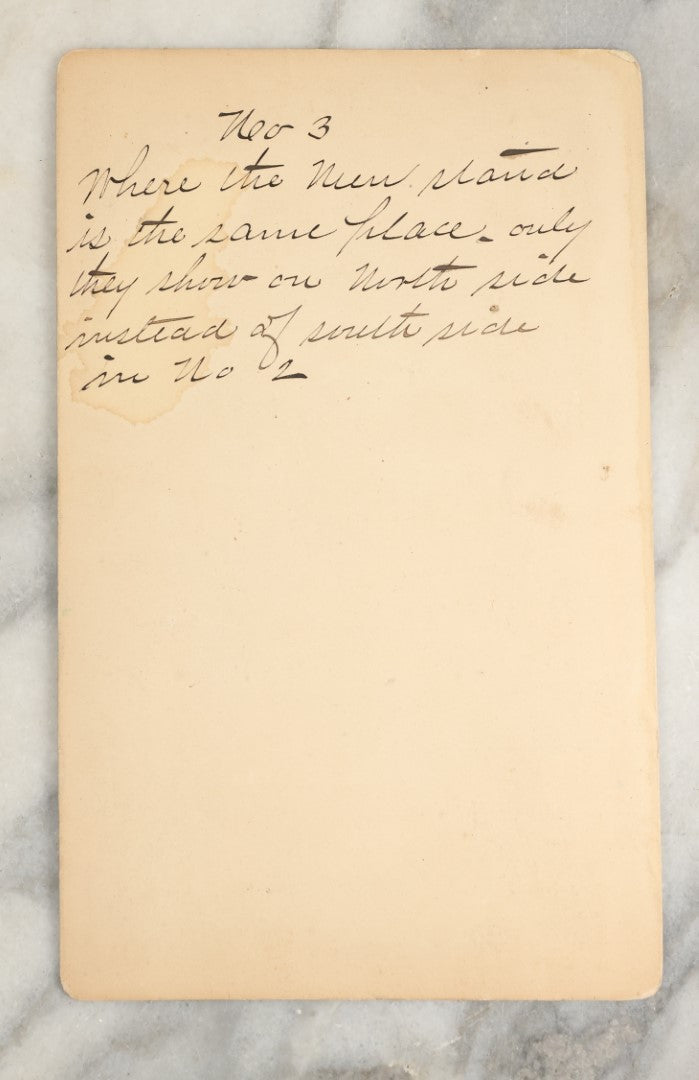 No 3
Where the Men stand
is the same place - only
they show on North side
instead of south side
in No 2